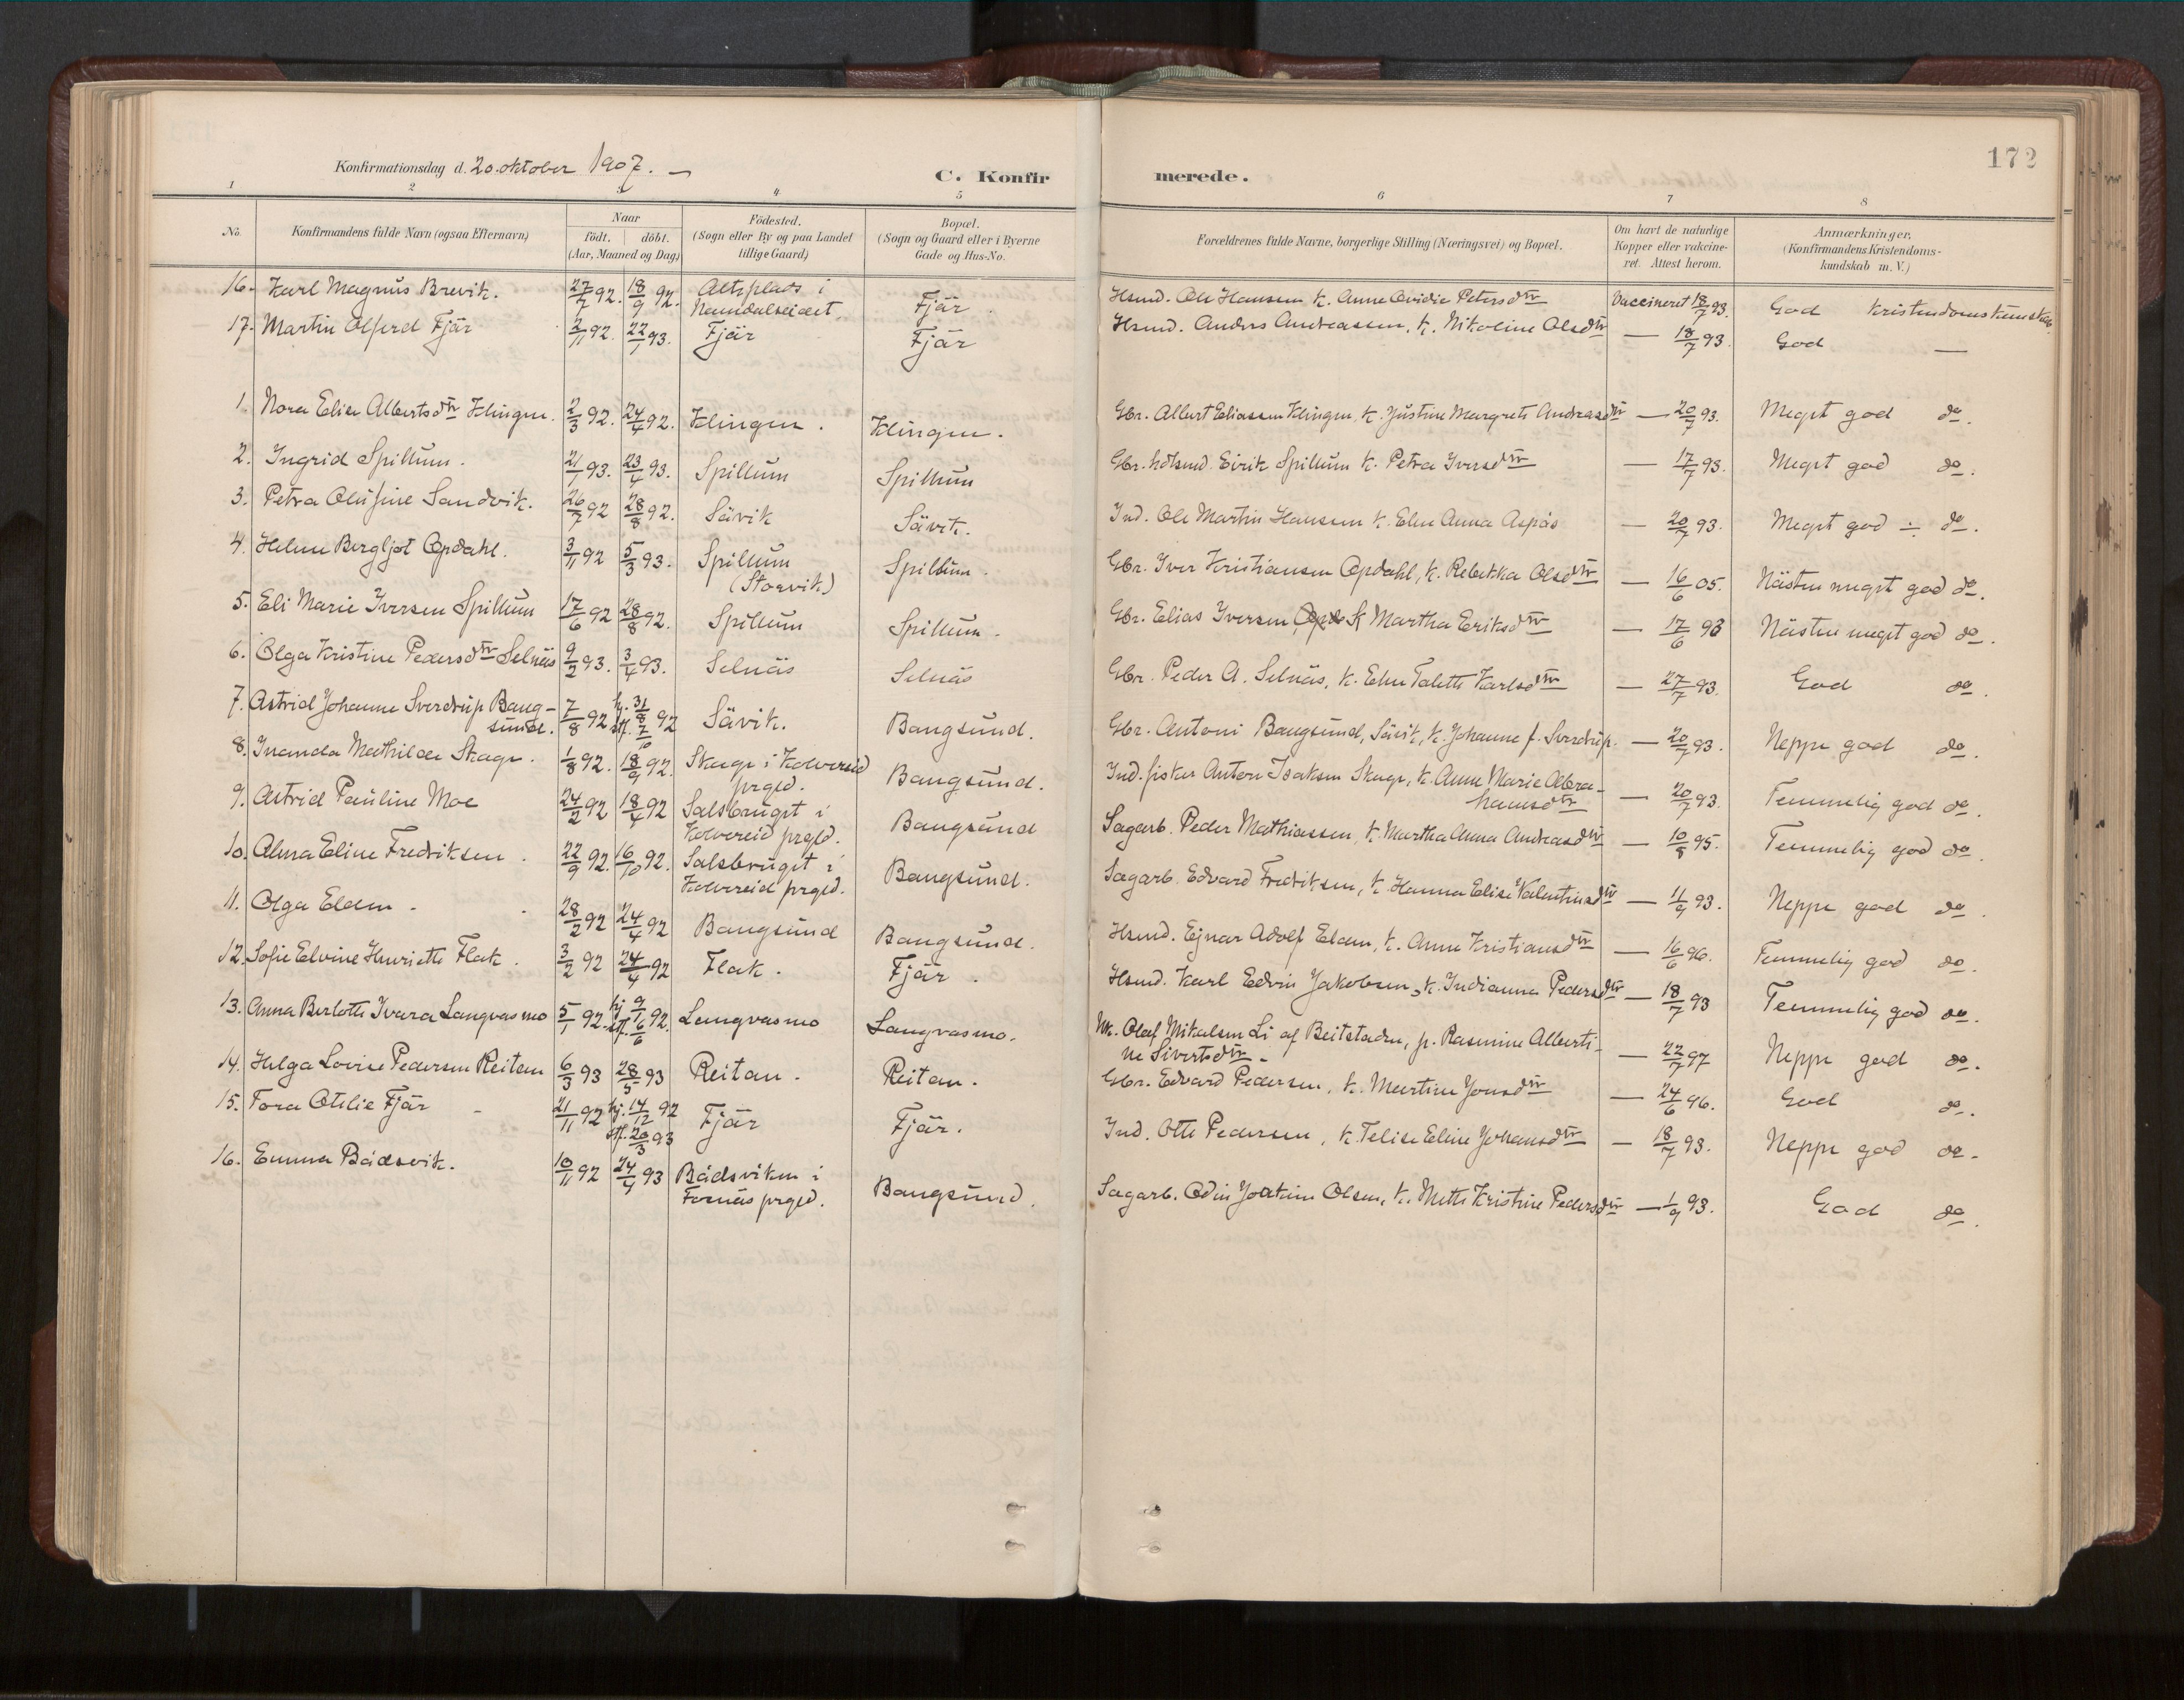 172
Konfirmationsdag d. 20. oktober 1907.
C. Konfirmerede.
1 2 3 4 5 6 7 8
No. Konfirmandens fulde Navn (ogsaa Efternavn) Naar födt. döbt. (Aar, Maaned og Dag) Födested. (Sogn eller By og paa Landet tillige Gaard) Bopæl. (Sogn og Gaard eller i Byerne Gade og Hus-No. Forældrenes fulde Navne, borgerlige Stilling (Næringsvei) og Bopæl. Om havt de naturlige Kopper eller vakcineret. Attest herom. Anmærkninger, (Konfirmandens Kristendomskundskab m. V.)
16. Karl Magnus Brevik. 27/7 92. 18/9 92. Altsplads i Namdalseidet. Fjär. Hsmd. Ole Hansen k. Anne Ovidie Petersdtr Vaccineret 18/7 93. God Kristendomskundskab
17. Martin Alfred Fjär 2/11 92. 22/1 93. Fjär Fjär Hsmd. Anders Andreassen, k. Nikoline Olsdtr — 18/7 93. God —
1. Nora Elise Albertsdtr Klingen. 2/3 92. 24/4 92. Klingen. Klingen. Gbr. Albert Eliassen Klingen, k. Justine Margrete Andreasdtr — 20/7 93. Meget god do.
2. Ingrid Spillum. 21/1 93. 23/4 93. Spillum Spillum Gbr. Eirik Spillum k. Petra Iversdtr — 17/7 93. Meget god do.
3. Petra Olufine Sandvik. 26/7 92 28/8 92. Sävik Sävik. Ind. Ole Martin Hansen k. Elen Anna Aspås — 20/7 93. Meget god ÷ do.
4. Helene Bergljot Opdahl. 3/11 92 5/3 93. Spillum (Storvik) Spillum. Gbr. Iver Kristiansen Opdahl, k. Rebekka Olsdtr — 16/6 05. Nästen meget god do.
5. Eli Marie Iversen Spillum 17/6 92 28/8 92. Spillum Spillum. Gbr. Elias Iversen k Martha Eriksdtr — 17/6 93 Nästen meget god do.
6. Olga Kristine Pedersdtr Selnäs 9/2 93. 3/4 93. Selnäs Selnäs Gbr. Peder A. Selnäs, k. Elen Talette Karlsdtr — 27/7 93. God do.
7. Astrid Johanne Sverdrup Bangsund. 7/8 92 hj. 31/8 stf. 7/10 92 Sävik. Bangsund. Gbr. Antoni Bangsund, Sävik, k. Johanne f. Sverdrup. — 20/7 93. Neppe god do.
8. Inanda Mathilde Skage. 1/8 92. 18/9 92. Skage i Kolvereid prgld. Bangsund. Ind. fisker Anton Isaksen Skage, k. Anne Marie Abrahamsdtr — 20/7 93. Temmelig god do.
9. Astrid Pauline Moe 24/2 92 18/4 92 Salsbruget i Kolvereid prgld. Bangsund Sagarb. Peder Mathiassen, k. Martha Anna Andreasdtr — 10/8 95. Temmelig god do.
10. Alma Eline Fredriksen. 22/9 92. 16/10 92. Salsbruget i Kolvereid prgld. Bangsund. Sagarb. Edvard Fredriksen, k. Hanna Elise Valentinsdtr — 11/9 93. Neppe god do.
11. Olga Elden. 28/2 92 24/4 92 Bangsund Bangsund. Hsmd. Ejnar Adolf Elden, k. Anne Kristiansdtr — 16/6 96. Temmelig god do.
12. Sofie Elvine Henriette Flak. 3/2 92 24/4 92 Flak. Fjär. Hsmd. Karl Edvin Jakobsen, k. Indianna Pedersdtr — 18/7 93 Temmelig god do.
13. Anna Berlotte Ivara Langvasmo 5/1 92. hj 9/1 stf. 6/6 92. Langvasmo Langvasmo. Uk. Olaf Mikalsen Li af Beitstaden, p. Rasmine Albertine Sivertsdtr. — 22/7 97 Neppe god do.
14. Helga Lovise Pedersen Reitan 6/3 93 28/5 93 Reitan. Reitan. Gbr. Edvard Pedersen, k. Martine Jonsdtr — 24/6 96. God do.
15. Tora Otelie Fjär 21/11 92 hj. 14/12 92 stf. 20/3 93 Fjär Fjär. Ind. Otte Pedersen, k. Telise Eline Johansdtr — 18/7 93. Neppe god do.
16. Emma Bådsvik. 10/11 92 24/4 93 Bådsviken i Fosnäs prgld. Bangsund. Sagarb. Odin Joakim Olsen, k. Mette Kristine Pedersdtr — 1/9 93. God do.